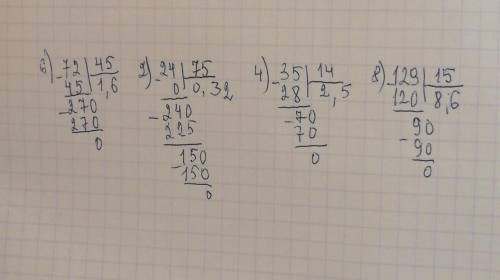 6) -72 | 45
45 | 1,6
-270
270
0
2) -24 | 75
0 | 0,32
-240
225
-150
150
0
4) -35 | 14
28 | 2,5
-70
70
0
8) -129 | 15
120 | 8,6
-90
90
0